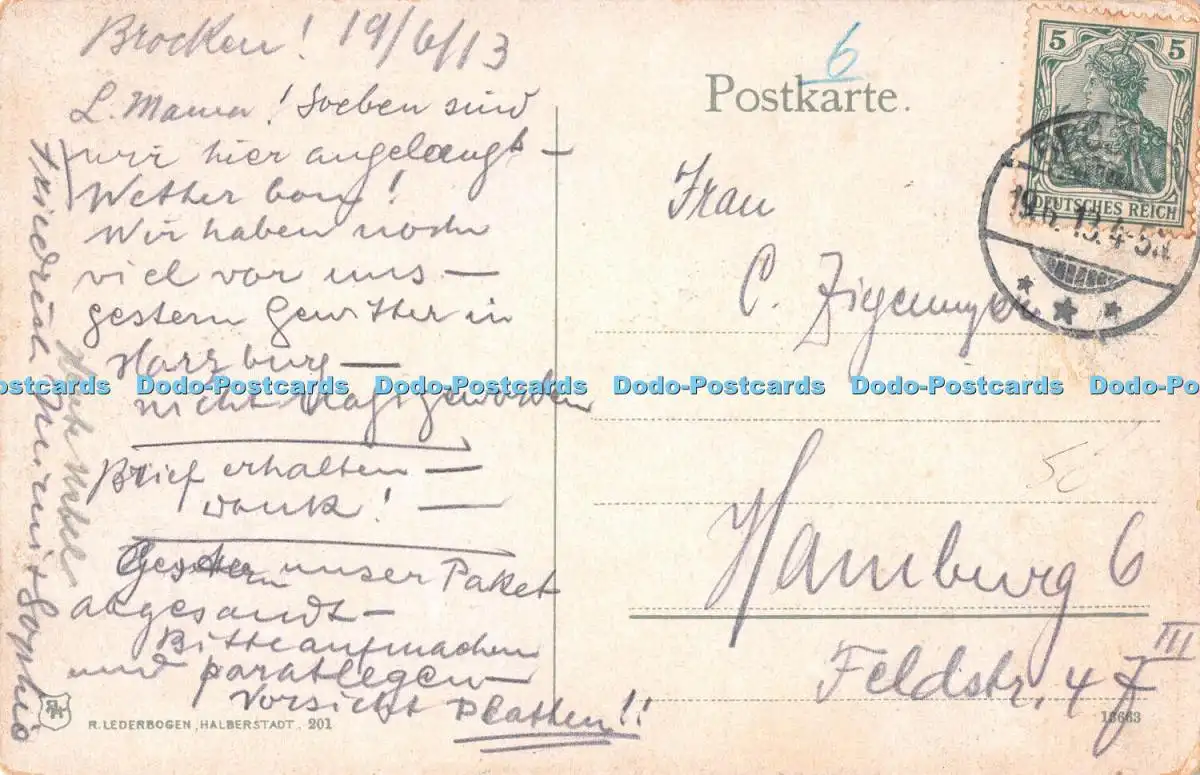 Brocken! 19/6/13
L. Mama! Soeben sind
wir hier angelangt —
Wetter bon!
Wir haben noch
viel vor uns —
gestern Gewitter in
Harzburg —
nicht naß geworden
Brief erhalten —
dank! —
Gestern unser Paket
abgesandt —
Bitte aufmachen
und paratlegen
Vorsicht Platten!!
Friedrich Sophie
6
Postkarte.
5 5
DEUTSCHES REICH
19.6.13. 4-5N.
Frau
C.
Hamburg 6
Feldstr. 47 III
50
Dodo-Postcards Dodo-Postcards Dodo-Postcards Dodo-Postcards Dodo-Postcards Dodo-Postcards
R. LEDERBOGEN, HALBERSTADT. 201
13663